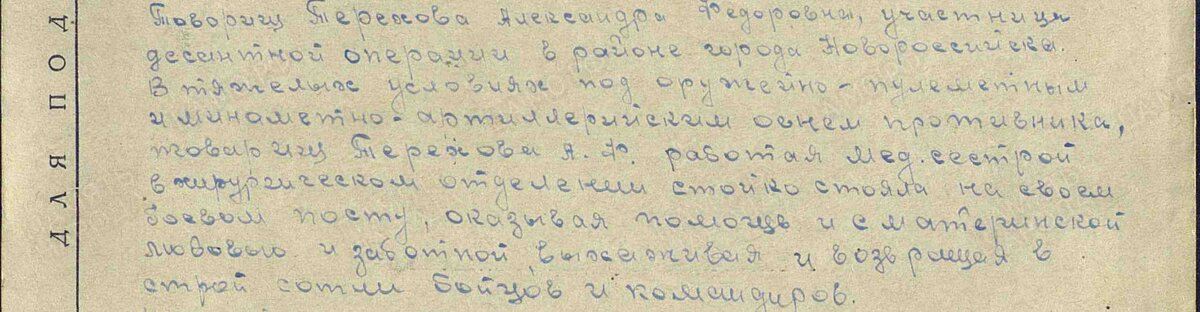 Товарищ Терехова Александра Федоровна, участница
десантной операции в районе города Новороссийска.
В тяжелых условиях под оружейно-пулеметным
и минаметно-артиллерийским огнем противника,
товарищ Терехова А.Ф. работая мед.сестрой
в хирургическом отделении стойко стояла на своем
боевом посту, оказывая помощь и с материнской
любовью и заботой выхаживая и возвращая в
строй сотни бойцов и командиров.
ДЛЯ ПОД